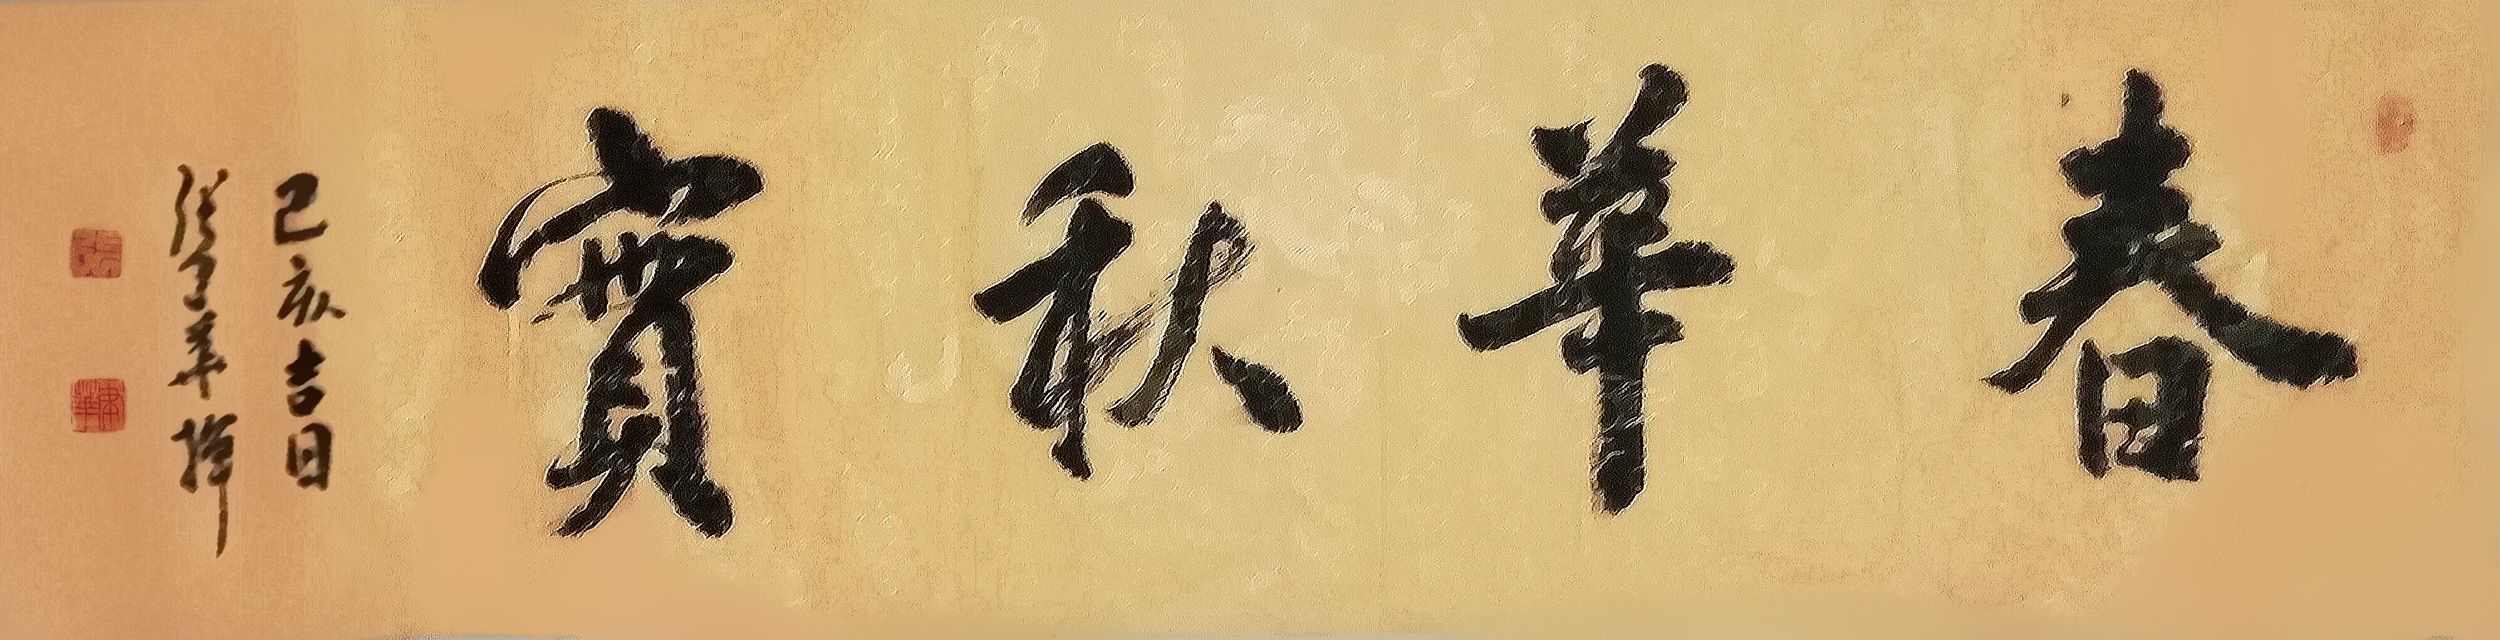 春華秋實
己亥吉日
張軍華揮